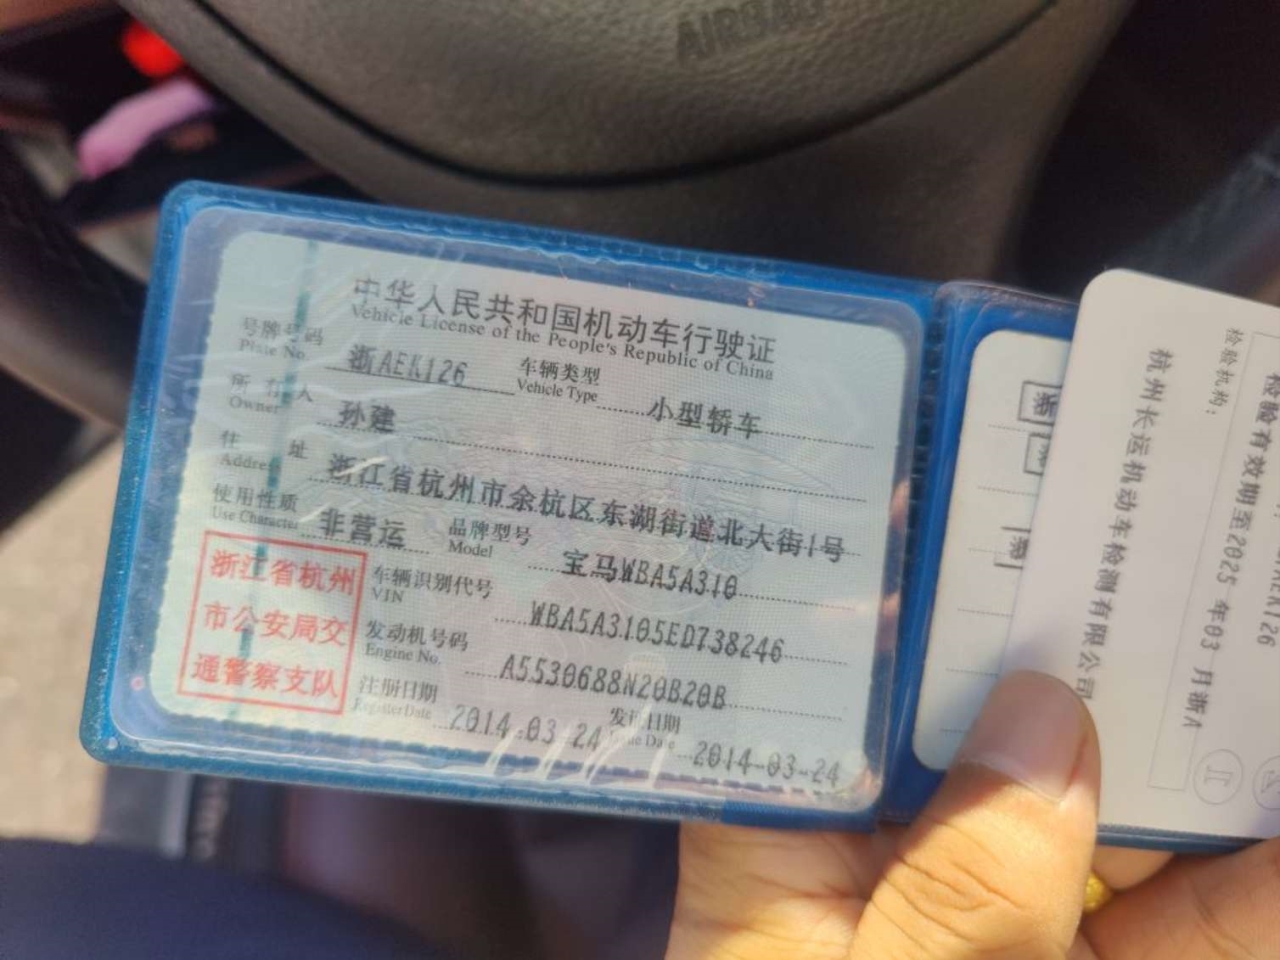 AIRBAG
中华人民共和国机动车行驶证
Vehicle License of the People's Republic of China
号牌号码 浙AEK126 车辆类型 小型轿车
Plate No. Vehicle Type
所有人 孙建
Owner
住址 浙江省杭州市余杭区东湖街道北大街1号
Address
使用性质 非营运 品牌型号 宝马WBA5A310
Use Character Model
浙江省杭州
市公安局交
通警察支队
车辆识别代号 WBA5A3105ED738246
VIN
发动机号码 A5530688N20B20B
Engine No.
注册日期 2014-03-24 发证日期 2014-03-24
Register Date Issue Date
检验有效期至2025年03月浙A
检验机构：
杭州长运机动车检测有限公司